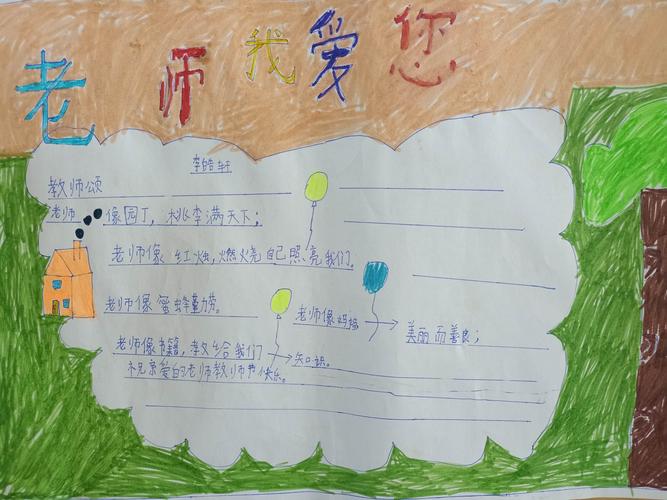 老师我爱您
李皓轩
教师颂
老师像园丁，桃李满天下；
老师像红烛，燃烧自己照亮我们。
老师像蜜蜂勤劳。
老师像妈妈→美丽而善良；
老师像书籍，教给我们→知识。
祝亲爱的老师教师节快乐。